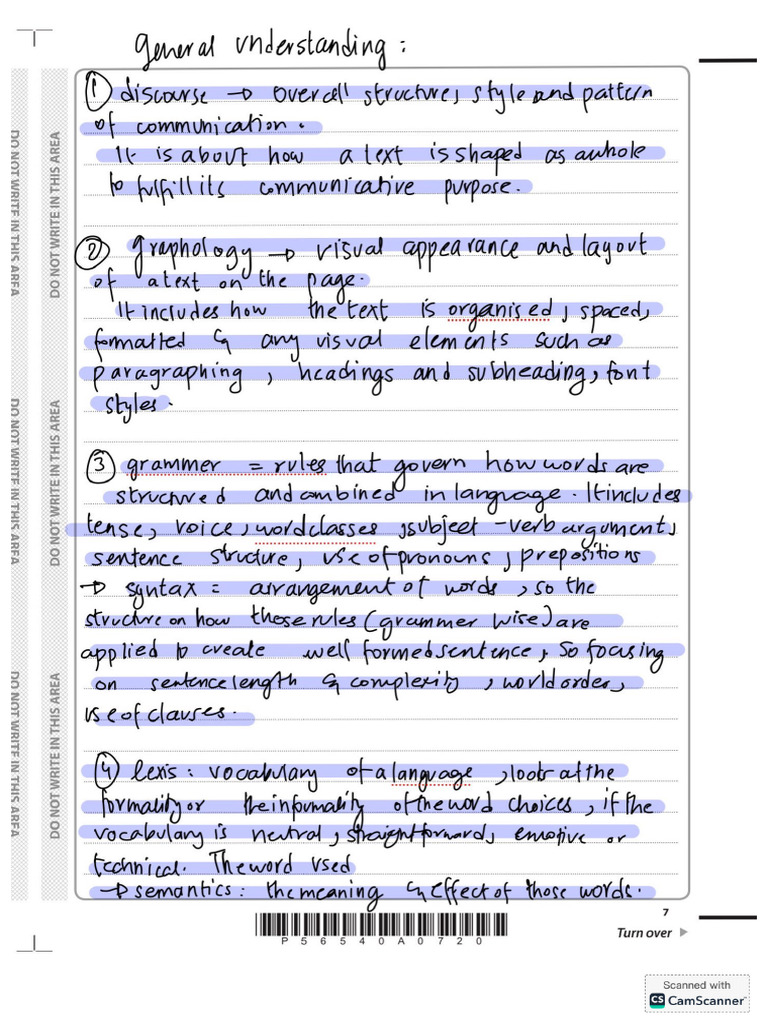 general understanding :
① discourse → overall structure, style and pattern
of communication.
It is about how a text is shaped as a whole
to fulfill its communicative purpose.
② graphology → visual appearance and layout
of a text on the page.
It includes how the text is organised, spaced,
formatted & any visual elements such as
paragraphing, headings and subheading, font
styles.
③ grammer = rules that govern how words are
structured and combined in language. It includes
tense, voice, word classes, subject-verb argument,
sentence structure, use of pronouns, prepositions
→ syntax = arrangement of words, so the
structure on how those rules (grammer wise) are
applied to create well formed sentence, so focusing
on sentence length & complexity, world order,
use of clauses.
④ lexis : vocabulary of a language, look at the
formality or the informality of the word choices, if the
vocabulary is neutral, straightforward, emotive or
technical. The word used
→ semantics : the meaning & effect of those words.
DO NOT WRITE IN THIS AREA
DO NOT WRITE IN THIS AREA
DO NOT WRITE IN THIS AREA
DO NOT WRITE IN THIS AREA
DO NOT WRITE IN THIS AREA
DO NOT WRITE IN THIS AREA
7
P56540A0720
Turn over
Scanned with
CS CamScanner